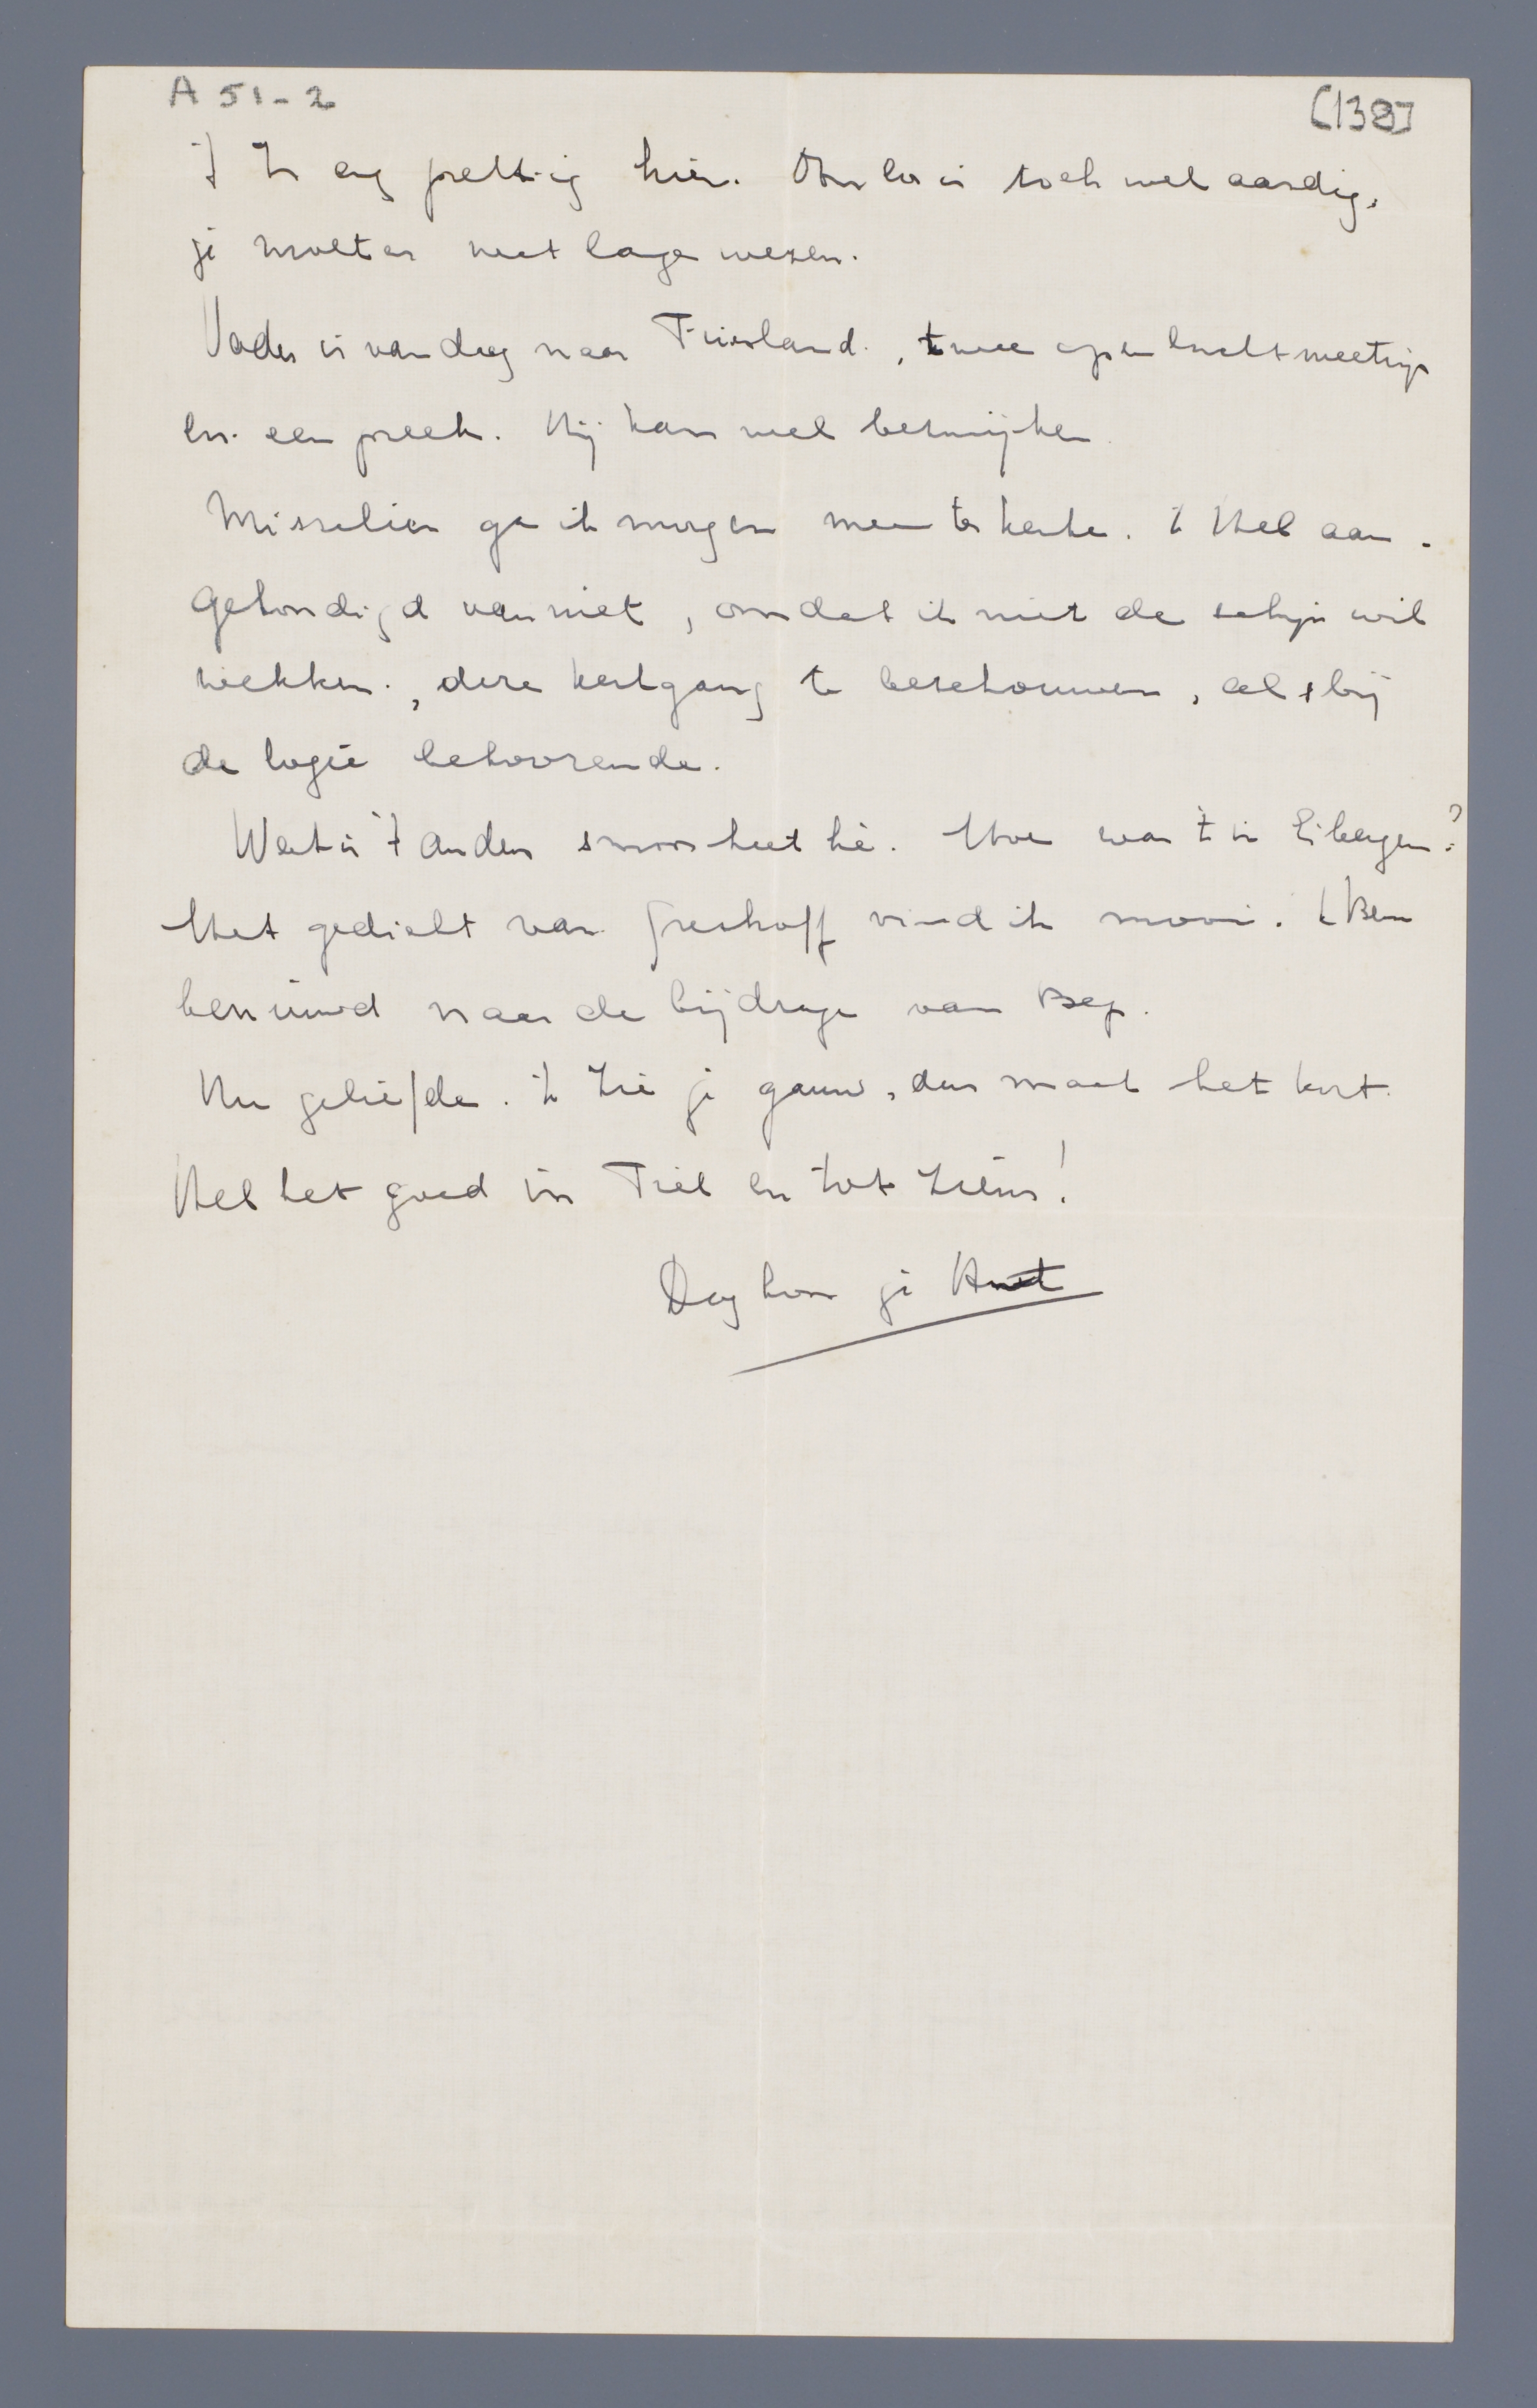 A 51-2
[138]
't Is erg prettig hier. is toch wel aardig,
je moet er niet lage wezen.
Vader is vandaag naar Friesland, twee openluchtmeetings
en een preek. Hij kan wel bezwijken.
Misschien ga ik morgen mee ter kerke. 'k Heb aan-
gekondigd van niet, omdat ik niet de schijn wil
wekken, deze kerkgang te beschouwen, als bij
de logé behoorende.
Wat is 't anders smoorheet hè. Hoe was 't in Eibergen?
Het gedicht van Greshoff vind ik mooi. 'k Ben
benieuwd naar de bijdrage van Bep.
Nu geliefde. 'k Zie je gauw, dus maak het kort.
Heb het goed in Tiel en tot ziens!
Dag hoor je